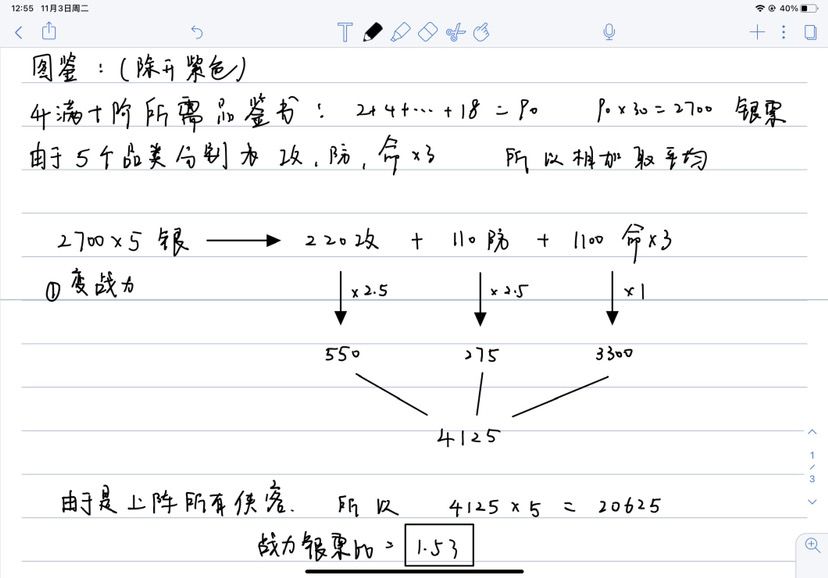 12:55 11月3日周二 40%
T
图鉴：(除开紫色)
升满十阶所需品鉴书： 2+4+…+18=90 90×30=2700 银票
由于5个品类分别为 攻,防,命×3 所以相加取平均
2700×5 银 → 220攻 + 110防 + 1100 命×3
①变战力 ×2.5 ×2.5 ×1
550 275 3300
4125
1
/
3
由于是上阵所有侠客. 所以 4125×5 = 20625
战力银票比= 1.53